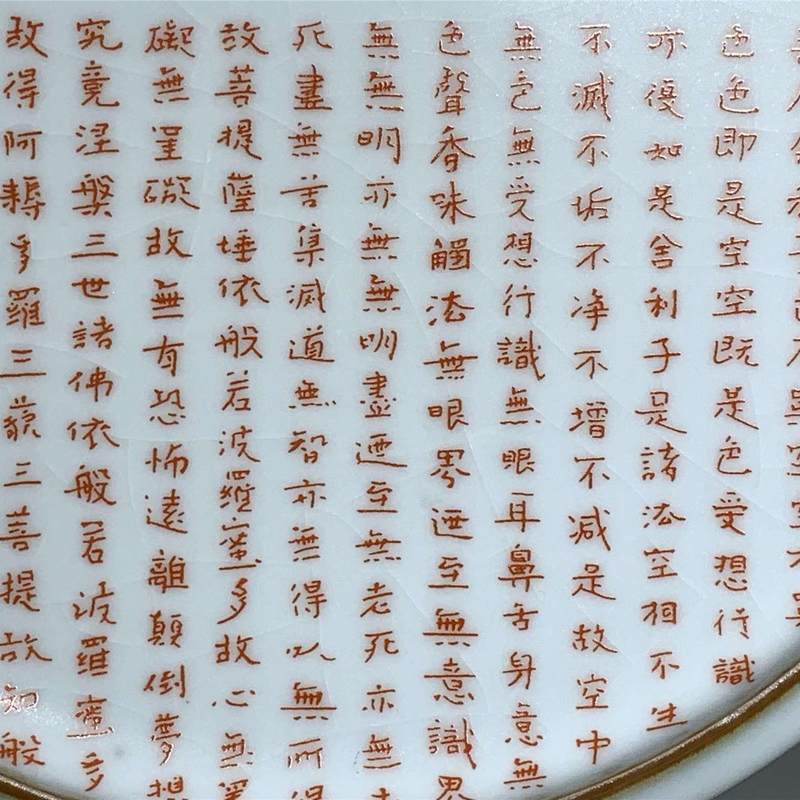 厄舍利子色不異空空不異
色色即是空空既是色受想行識
亦復如是舍利子是諸法空相不生
不滅不垢不净不增不减是故空中
無色無受想行識無眼耳鼻舌身意無
色聲香味觸法無眼界迺至無意識界
無無明亦無無明盡迺至無老死亦無
死盡無苦集滅道無智亦無得以無所得
故菩提薩埵依般若波羅蜜多故心無罣
礙無罣礙故無有恐怖遠離顛倒夢想
究竟涅槃三世諸佛依般若波羅蜜多
故得阿耨多羅三藐三菩提故知般